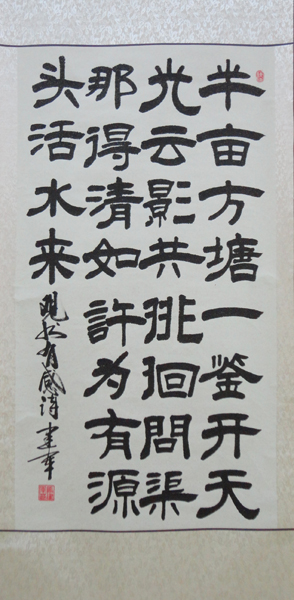 半亩方塘一鉴开天
光云影共徘徊問渠
那得清如許为有源
头活水来
观书有感诗